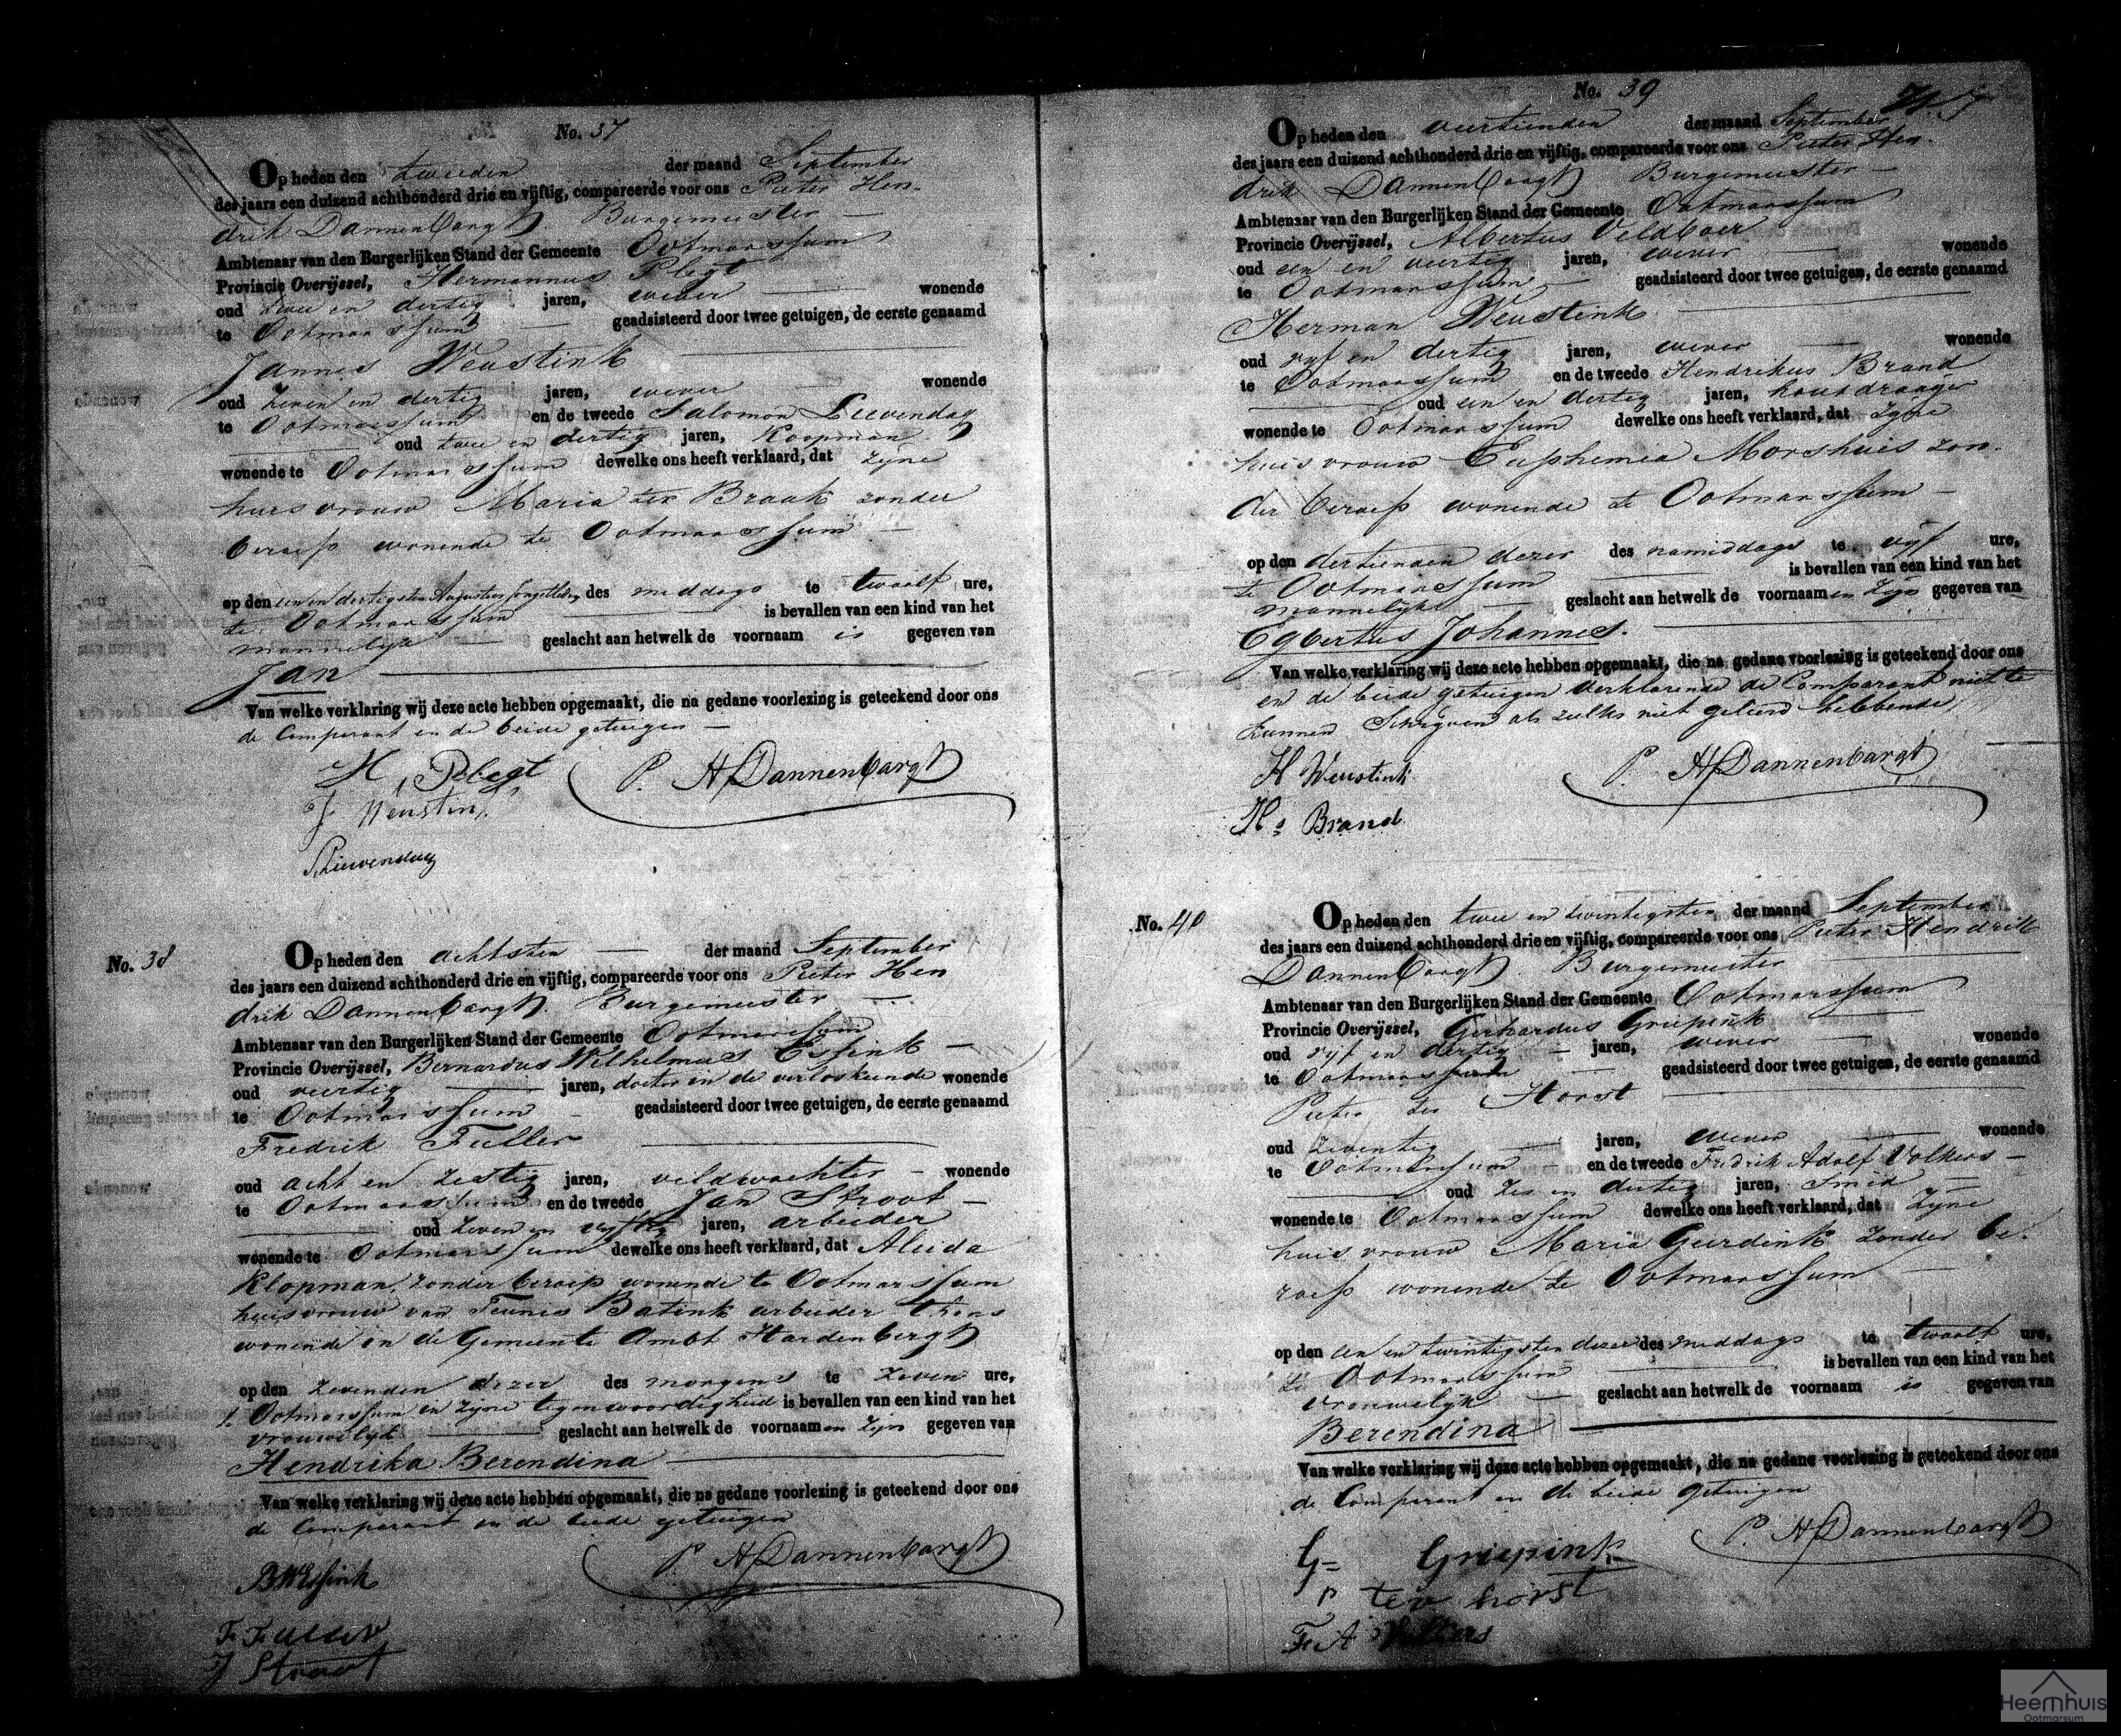 No. 37
Op heden den tweeden der maand September
des jaars een duizend achthonderd drie en vijftig, compareerde voor ons Pieter Hen-
drik Dannenbargh Burgemeester
Ambtenaar van den Burgerlijken Stand der Gemeente Ootmarssum
Provincie Overijssel, Hermannus Plegt
oud twee en dertig jaren, wever wonende
te Ootmarssum geadsisteerd door twee getuigen, de eerste genaamd
Jannes Weustink
oud zeven en dertig jaren, wever wonende
te Ootmarssum en de tweede Salomon Lievendag
oud twee en dertig jaren, Koopman
wonende te Ootmarssum dewelke ons heeft verklaard, dat zijne
huisvrouw Maria ter Braak zonder
beroep wonende te Ootmarssum
op den een en dertigsten Augustus jongstleden des middags te twaalf ure,
te Ootmarssum is bevallen van een kind van het
mannelijk geslacht aan hetwelk de voornaam is gegeven van
Jan
Van welke verklaring wij deze acte hebben opgemaakt, die na gedane voorlezing is geteekend door ons
de Comparant en de beide getuigen
H, Plegt P. H Dannenbargh
J Weustink
S Lievendag
No. 38
Op heden den achtsten der maand September
des jaars een duizend achthonderd drie en vijftig, compareerde voor ons Pieter Hen
drik Dannenbargh. Burgemeester
Ambtenaar van den Burgerlijken Stand der Gemeente Ootmarssum
Provincie Overijssel, Bernardus Wilhelmus Essink
oud veertig jaren, doctor in de verloskunde wonende
te Ootmarssum geadsisteerd door twee getuigen, de eerste genaamd
Fredrik Fuller
oud acht en zestig jaren, veldwachter wonende
te Ootmarssum en de tweede Jan Stroot
oud zeven en vijftig jaren, arbeider
wonende te Ootmarssum dewelke ons heeft verklaard, dat Aleida
Klopman, zonder beroep wonende te Ootmarssum
huisvrouw van Teunis Batink arbeider thans
wonende in de Gemeente Ambt Hardenbergh
op den zevenden dezer des morgens te zeven ure,
te Ootmarssum in zijne tegenwoordigheid is bevallen van een kind van het
vrouwelijk geslacht aan hetwelk de voornaamen zijn gegeven van
Hendrika Berendina
Van welke verklaring wij deze acte hebben opgemaakt, die na gedane voorlezing is geteekend door ons
de Comparant en de beide getuigen
BWEssink P. H Dannenbargh
F Fuller
J Stroot
No. 39
Op heden den veertienden der maand September
des jaars een duizend achthonderd drie en vijftig, compareerde voor ons Pieter Hen-
drik Dannenbargh Burgemeester
Ambtenaar van den Burgerlijken Stand der Gemeente Ootmarssum
Provincie Overijssel, Albertus Veldboer
oud een en veertig jaren, wever wonende
te Ootmarssum geadsisteerd door twee getuigen, de eerste genaamd
Herman Weustink
oud vijf en dertig jaren, wever wonende
te Ootmarssum en de tweede Hendrikus Brand
oud een en dertig jaren, houtdraager
wonende te Ootmarssum dewelke ons heeft verklaard, dat zijne
huisvrouw Euphemia Morshuis zon-
der beroep wonende te Ootmarssum
op den dertienden dezer des namiddags te vijf ure,
te Ootmarssum is bevallen van een kind van het
mannelijk geslacht aan hetwelk de voornaamen zijn gegeven van
Egbertus Johannes.
Van welke verklaring wij deze acte hebben opgemaakt, die na gedane voorlezing is geteekend door ons
en de beide getuigen verklarende de Comparant niet te
kunnen Schrijven als zulks niet geleerd hebbende
H Weustink P. H Dannenbargh
Hs Brand
No. 40
Op heden den twee en twintigsten der maand September
des jaars een duizend achthonderd drie en vijftig, compareerde voor ons Pieter Hendrik
Dannenbargh Burgemeester
Ambtenaar van den Burgerlijken Stand der Gemeente Ootmarssum
Provincie Overijssel, Gerhardus Griepink
oud vijf en dertig jaren, wever wonende
te Ootmarssum geadsisteerd door twee getuigen, de eerste genaamd
Pieter ter Horst
oud zeventig jaren, wever wonende
te Ootmarssum en de tweede Fredrik Adolf Volkers
oud zes en dertig jaren, Smid
wonende te Ootmarssum dewelke ons heeft verklaard, dat zijne
huisvrouw Maria Geerdink zonder be-
roep wonende te Ootmarssum
op den een en twintigsten dezer des middags te twaalf ure,
te Ootmarssum is bevallen van een kind van het
vrouwelijk geslacht aan hetwelk de voornaam is gegeven van
Berendina
Van welke verklaring wij deze acte hebben opgemaakt, die na gedane voorlezing is geteekend door ons
de Comparant en de beide getuigen
G= Griepink P. H Dannenbargh
P ter horst
F. A Volkers
Heemhuis
Ootmarsum